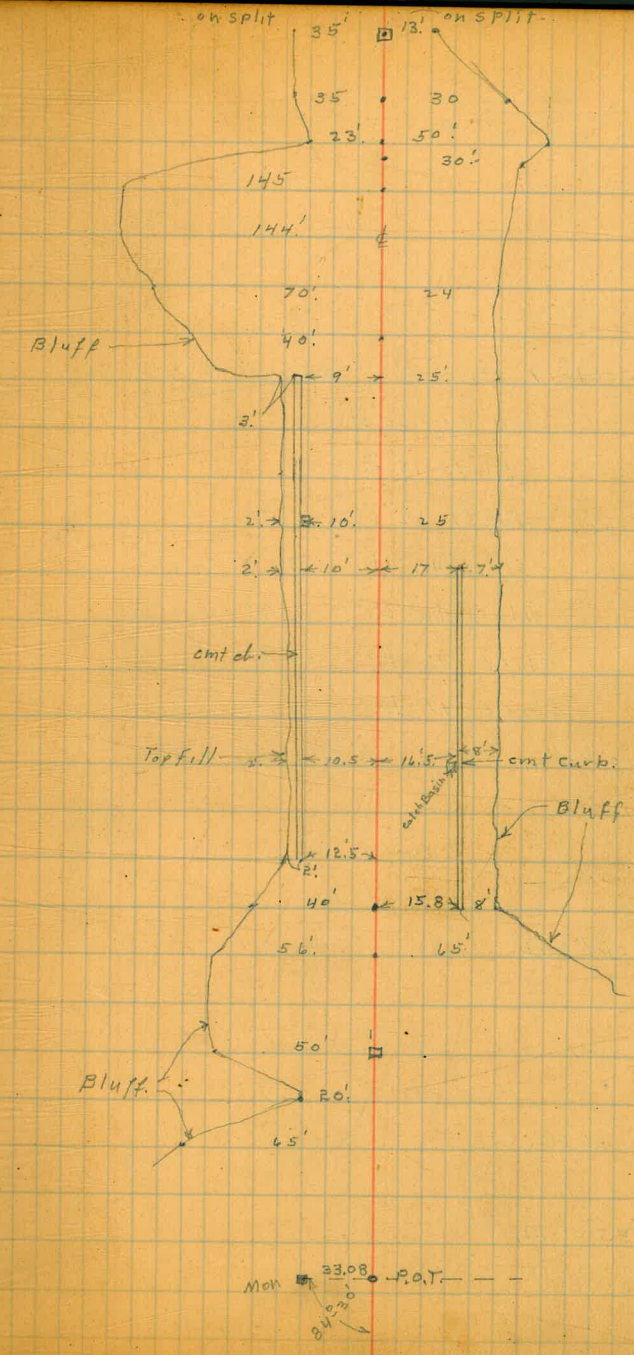 on split on split
35' 13'
35 30
23' 50'
30'
145
144' ℄
70' 24
Bluff 40'
9' 25'
3'
2' 10' 25
2' 10' 17 7'
cmt cb.
Top Fill 2' 10.5 16.5 8' cmt curb.
Catch Basin
Bluff
12.5
2'
40' 15.8 8'
56' 65'
50'
Bluff. 20'
45'
Mon 33.08 P.O.T.
84° 30'